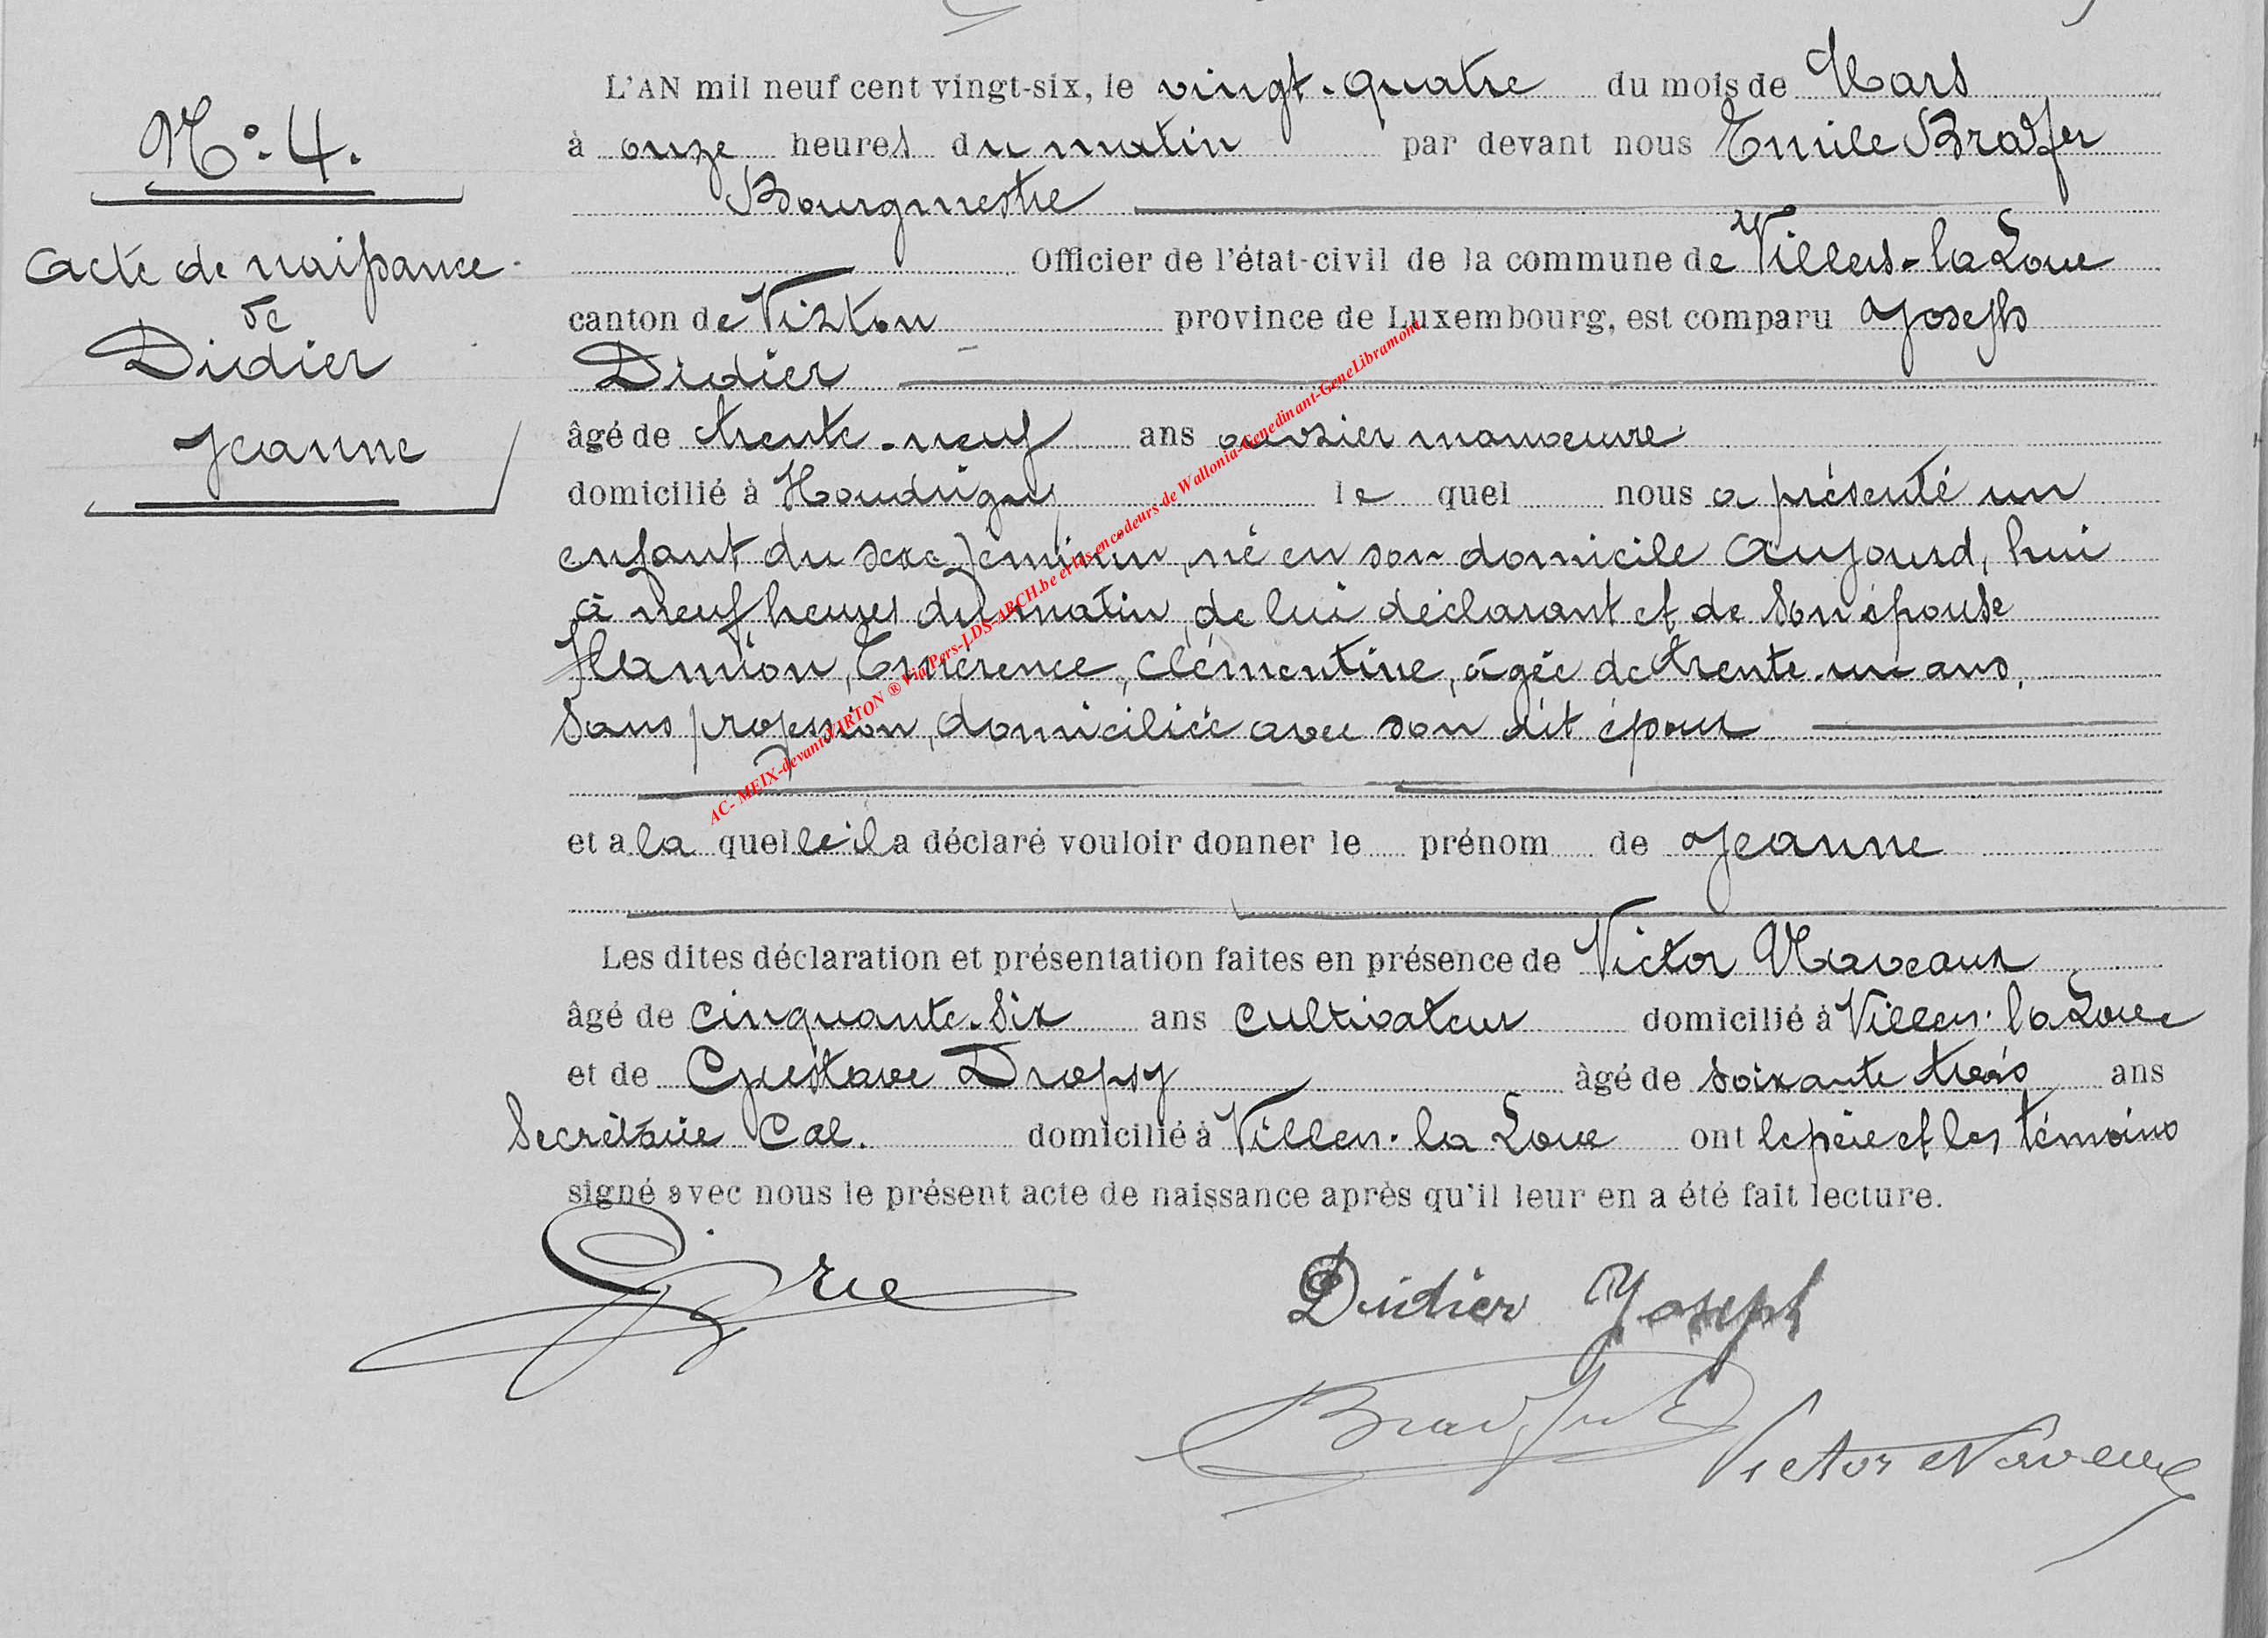 N° 4.
Acte de naissance
de
Didier
Jeanne
L'AN mil neuf cent vingt-six, le vingt-quatre du mois de Mars
à onze heures du matin par devant nous Emile Bradfer
Bourgmestre
Officier de l'état-civil de la commune de Villers-la Loue
canton de Virton province de Luxembourg, est comparu Joseph
Didier
âgé de trente-neuf ans ouvrier manoeuvre
domicilié à Houdrigny le quel nous a présenté un
enfant du sexe féminin, né en son domicile aujourd'hui
à neuf heures du matin, de lui déclarant et de son épouse
Hamion, Emérence, Clémentine, âgée de trente-un ans,
sans profession, domiciliée avec son dit époux
et a la quelle il a déclaré vouloir donner le prénom de Jeanne
Les dites déclaration et présentation faites en présence de Victor Naveaux
âgé de cinquante-six ans cultivateur domicilié à Villers-la Loue
et de Gustave Dropsy âgé de soixante trois ans
Secrétaire Cal. domicilié à Villers-la Loue ont le père et les témoins
signé avec nous le présent acte de naissance après qu'il leur en a été fait lecture.
Didier Joseph
Bradfer E
Victor Naveaux
AC- MEIX-devant-VIRTON ® Via Pers-LDS-ARCH.be et les encodeurs-de Wallonia-Genedinant-GeneLibramont